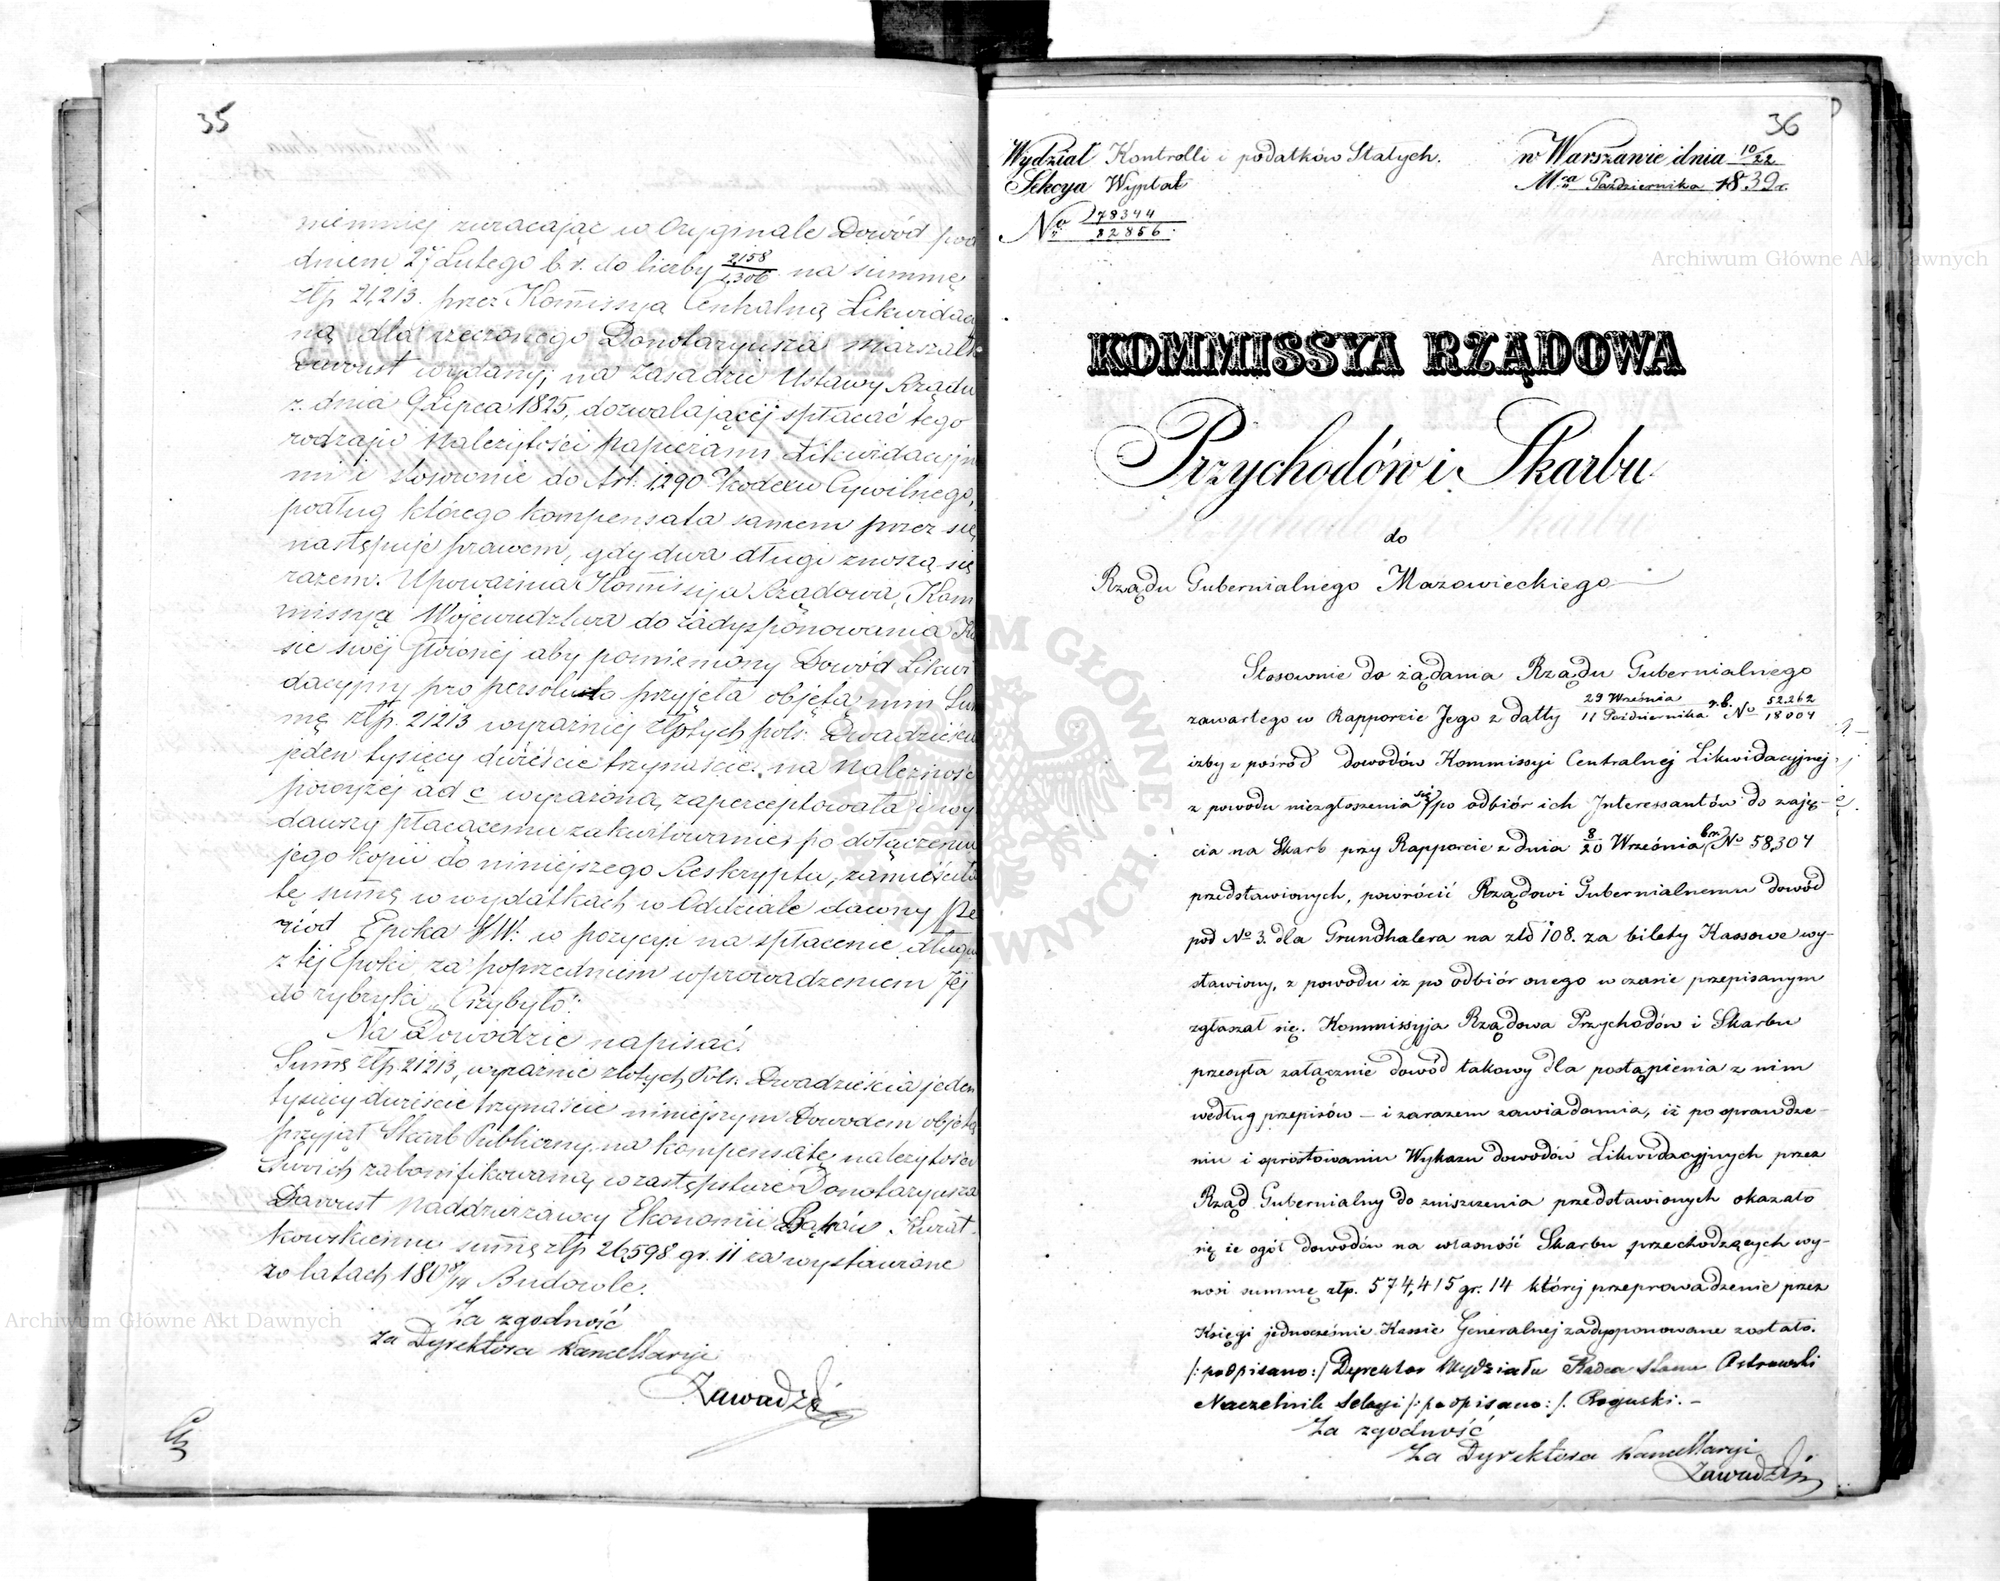 35
niemniej zwracając w Oryginale Dowód pod
dniem 27 Lutego b. r. do liczby 2158/1,306 na summę
złp. 21,213. przez Kommissyą Centralną Likwidacyi
ną dla rzeczonego Donotaryusza Marszałk
Davoust wydany; na zasadzie Ustawy Rządu
z dnia 9 Lipca 1825, dozwalającéj spłacać tego
rodzaju Należytości Papierami Likwidacyjn
mi i stosownie do Art: 1,290 Kodexu Cywilnego,
podług którego kompensata samem przez się
następuje prawem, gdy dwa długi znoszą się
razem. Upoważnia Kommissyja Rządowa, Kom
missyją Województwa do zadysponowania Ka
sie swéj Głównéj aby pomieniony Dowód Likwi
dacyjny pro persoluto przyjęła objętą nim Sum
mę złp. 21213 wyraźniej złotych pols: Dwadzieścia
jeden tysięcy dwieście trzynaście. na Należność
powyżéj ad c wyrażoną, zaperceptowała i wy
dawszy płacącemu zakwitowanie, po dołączeniu
jego kopii do niniejszego Reskryptu, zamieściła
tę summę w wydatkach w Oddziale dawny Pe
riod Epoka XW: w pozycyi na spłacenie długu
z téj Epoki, za poprzedniem wprowadzeniem Jéj
do rybryki „Przybyło".
Na Dowodzie napisać.
Summę złp. 21213, wyraźnie złotych Pols: Dwadzieścia jeden
tysięcy dwieście trzynaście niniejszym Dowodem objętą
przyjął Skarb Publiczny na kompensatę należytości
swoich zabonifikowaną w zastępstwie Donotaryusza
Davoust Naddzierżawcy Ekonomii Bąków Kwiat-
kowskiemu summę złp 26,598 gr. 11 za wystawione
w latach 180 9/14 Budowle.
Za zgodność
za Dyrektora Kancellaryi
Zawadzki
36
Wydział Kontrolli i podatków Stałych.
Sekcya Wypłat
No 78344/22856.
w Warszawie dnia 10/22
Mca Października 1839 r.
KOMMISSYA RZĄDOWA
Przychodów i Skarbu
do
Rządu Gubernialnego Mazowieckiego
Stosownie do żądania Rządu Gubernialnego
zawartego w Rapporcie Jego z datty 29 Września/11 Października r. b. No 52,262/18004
iżby z pośród dowodów Kommissyi Centralnéj Likwidacyjnéj
z powodu niezgłoszenia się po odbiór ich Interessantów do zaję-
cia na Skarb przy Rapporcie z dnia 8/20 Września b.r. No 58,304
przedstawionych, powrócić Rządowi Gubernialnemu dowód
pod No 3. dla Grundhalera na złd 108. za bilety Kassowe wy-
stawiony, z powodu iż po odbiór onego w czasie przepisanym
zgłaszał się. Kommissyja Rządowa Przychodów i Skarbu
przesyła załącznie dowód takowy dla postąpienia z nim
według przepisów — i zarazem zawiadamia, iż po sprawdze-
niu i sprostowaniu Wykazu dowodów Likwidacyjnych przez
Rząd Gubernialny do zniszczenia przedstawionych okazało
się że ogół dowodów na własność Skarbu przechodzących wy-
nosi summę złp. 574,415 gr. 14 któréj przeprowadzenie przez
Księgi jednocześnie Kassie Generalnéj zadysponowane zostało.
/:podpisano:/ Dyrektor Wydziału Radca Stanu Ostrowski
Naczelnik Sekcyi /:podpisano:/. Roguski. —
Za zgodność
Za Dyrektora Kancellaryi
Zawadzki
Archiwum Główne Akt Dawnych
Archiwum Główne Akt Dawnych